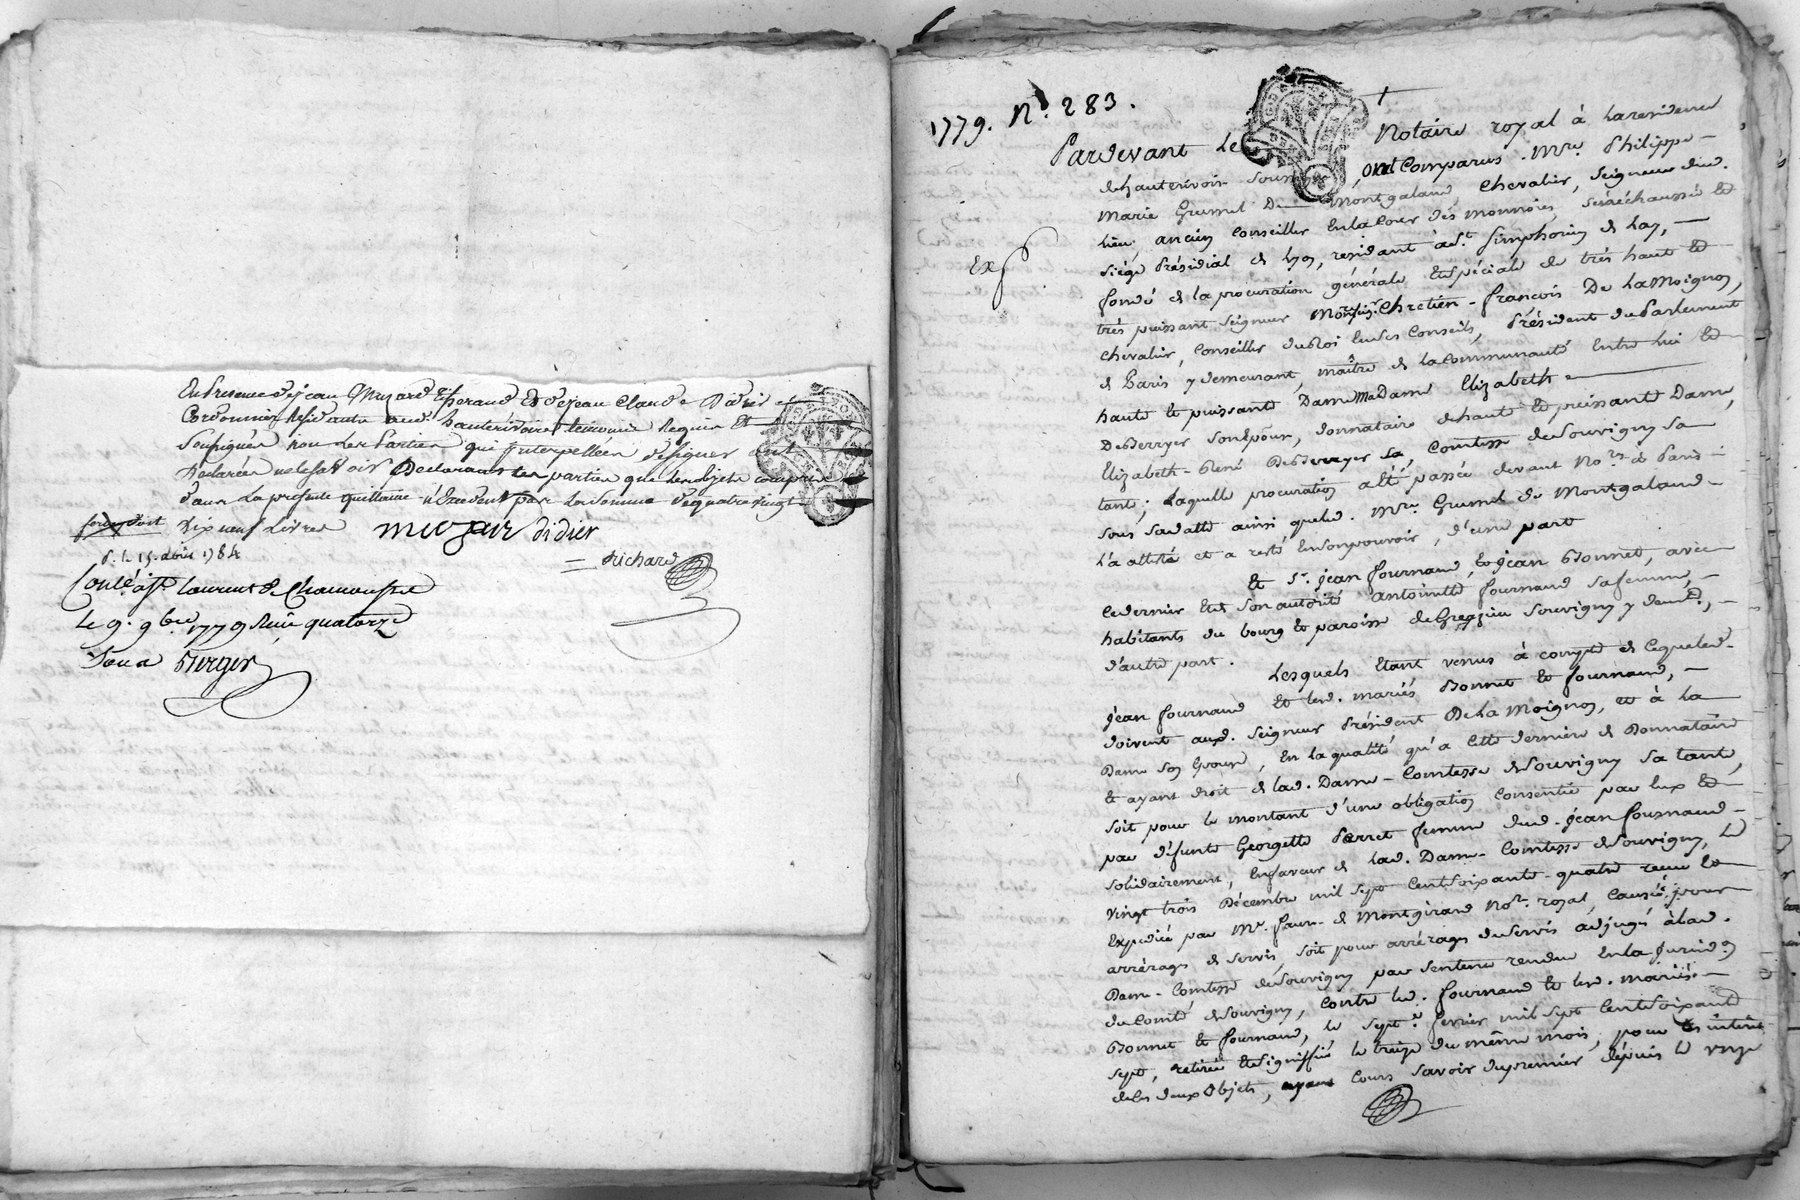 En Presence de jean Muzard et de jean Claude Didier
Cordonnier Residants aud. hauterivoire temoins Requis Et
Soussignés non les Parties qui Interpellées de signer ont
Declarées ne le sçavoir Declarants les parties que les objets compris
dans La presente quittance n'Excedent pas La Somme de quatre vingt
dix neuf Livres
muzar didier
Richard
P. le 15. 1784
Conlé. à St. Laurent de Chamousset
Le 9. 9bre 1779 Reçu quatorze
Sous Berger
1779. N°. 283.
Pardevant Le Notaire royal à La residence
dehauterivoir ont Comparus. Mre. Philippe
Marie Grumel De Montgaland Chevalier, Seigneur dud.
Lieu, ancien Conseiller En la Cour des monnoies, Sénéchaussée et
Siége Présidial de Lyon, residant à St. Simphorien de Lay,
fondé de la procuration générale Et Spéciale de très haut et
très puissant Seigneur Chretien-francois De LaMoignon,
Chevalier, Conseiller du Roi En Ses Conseils, Président du Parlement
de Paris y demeurant, maître de la Communauté Entre lui et
haute et puissante Dame Madame Elizabeth
De Berryer Son Epouse, donnataire de haute et puissante Dame,
Elizabeth-René De Berryer La Comtesse de Souvigny Sa
tante; Laquelle procuration a été passée devant Nores. à Paris
Sous Sa datte ainsi que led. Mre. Grumel de Montgaland
L'a attesté et a resté En Son pouvoir, d'une part
Et Sr. jean fournand, et jean Bonnet, avec
Ce dernier Et de Son autorité antoinette fournand Sa femme,
habitants du bourg et paroisse de Grezieu Souvigny y demts.,
d'autre part.
Lesquels Etant venus à compte de Ceque led.
jean fournand Et led. mariés Bonnet et fournand,
doivent aud. Seigneur Président De La Moignon, et à La
Dame Son Epouse, En la qualité qu'a Cette derniere de Donnataire
et ayant droit de lad. Dame-Comtesse de Souvigny Sa tante,
Soit pour le montant d'une obligation Consentie par Eux et
par défunte Georgette Perret femme dud. jean fournand
Solidairement, En faveur de Lad. Dame-Comtesse de Souvigny, Le
vingt trois Décembre mil Sept Cent Soixante-quatre reçue et
Expediée par Me. de Montgirand Nore. royal, Causée pour
arrérages de Servis, Soit pour arrérages de Servis adjugés à Lad.
Dame-Comtesse de Souvigny par Sentence rendue En la
du Comté de Souvigny, Contre led. fournand et led. mariés
Bonnet et fournand, le Sept fevrier mil Sept Cent Soixante
Sept, retirée Et Signiffiée le treize du même mois, pour
de Ces deux Objets, ayant Cours Savoir du premier depuis le